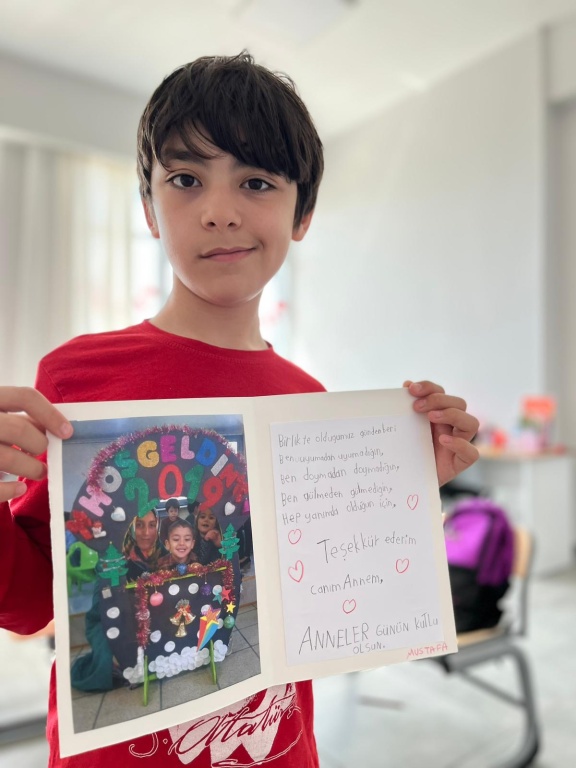 HOŞGELDİN
2019
Birlikte olduğumuz günden beri
Ben uyumadan uyumadığın,
Ben doymadan doymadığın,
Ben gülmeden gülmediğin,
Hep yanımda olduğun için,
Teşekkür ederim
canım Annem,
ANNELER GÜNÜN KUTLU
OLSUN.
MUSTAFA
Atatürk